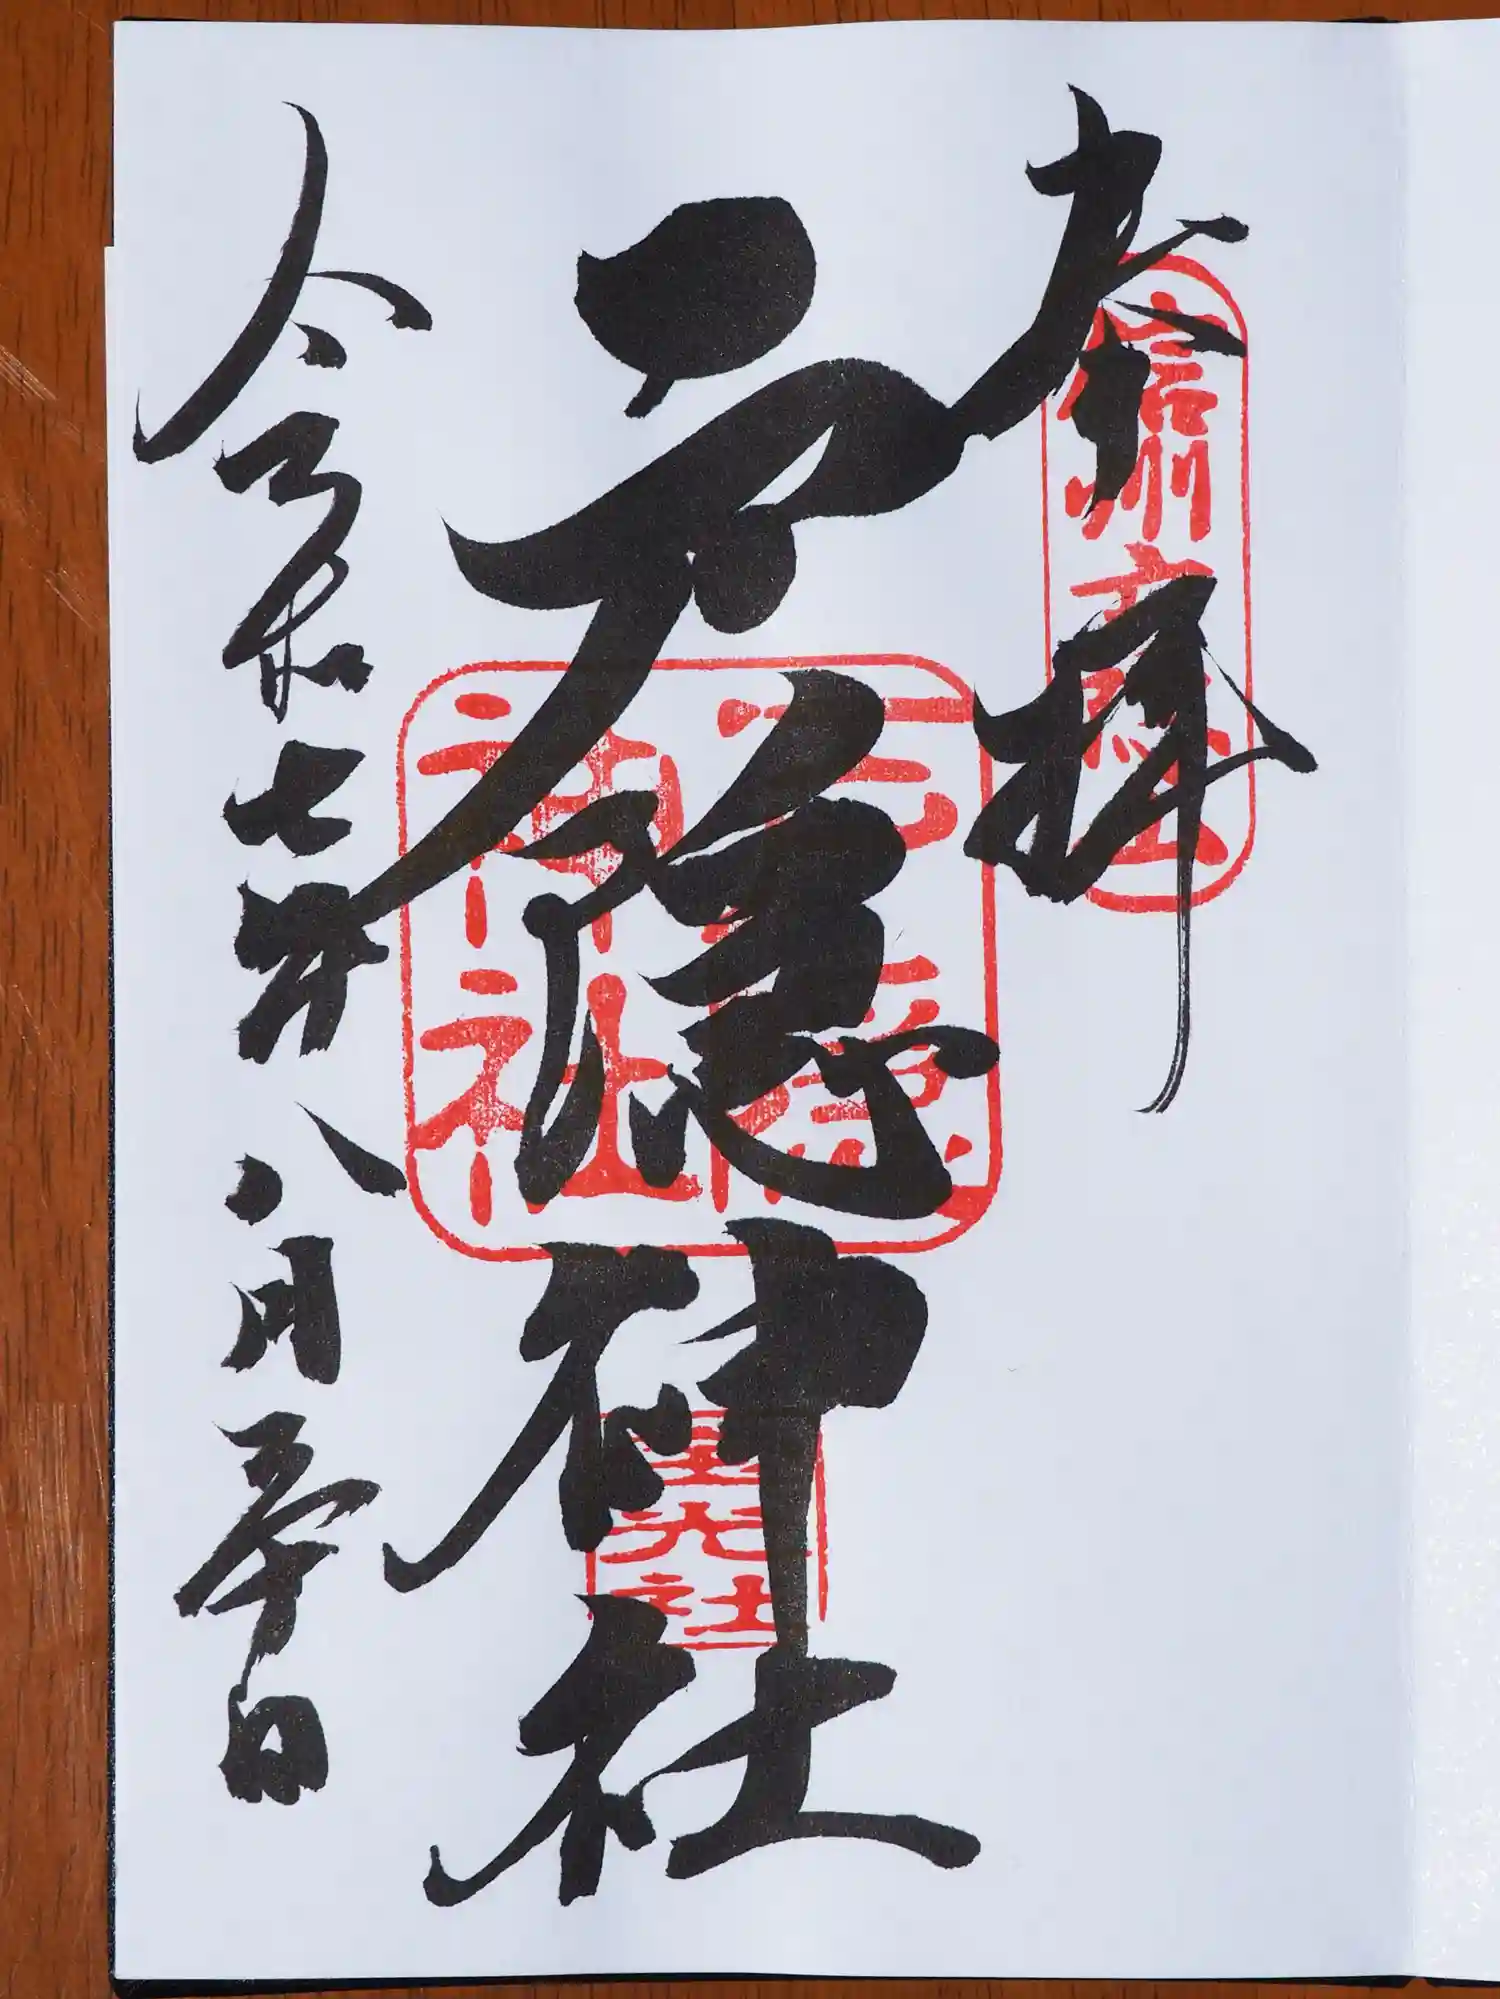 奉拝
信州戸隠山
戸隠神社
戸隠神社
宝光社
令和七年八月三十日